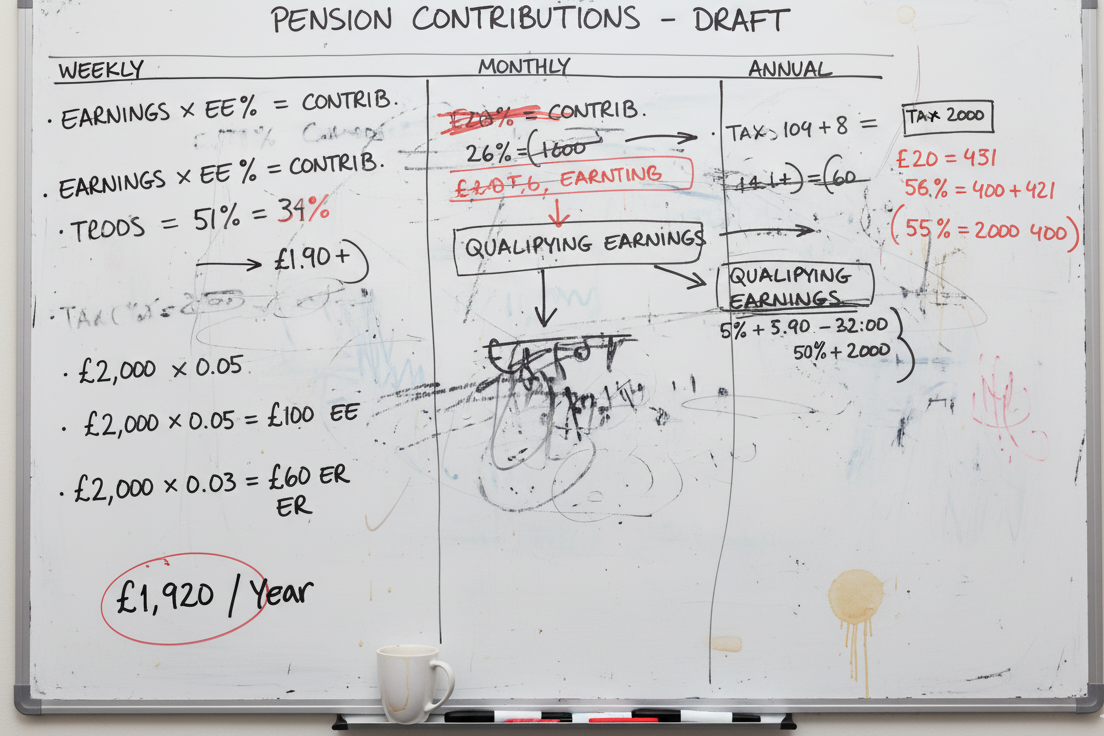 PENSION CONTRIBUTIONS - DRAFT
WEEKLY
· EARNINGS × EE% = CONTRIB.
· EARNINGS × EE % = CONTRIB.
· TRODS = 51% = 34%
→ £1.90+)
· £2,000 × 0.05
· £2,000 × 0.05 = £100 EE
· £2,000 × 0.03 = £60 ER
ER
£1,920 / Year
MONTHLY
= CONTRIB.
26% = (1600 →
EARNTING
QUALIPYING EARNINGS
ANNUAL
· TAX, 109 + 8 =
= (60
QUALIPYING
EARNINGS
5% + 5.90 - 32:00
50% + 2000
TAX 2000
£20 = 431
56.% = 400 + 421
(55% = 2000 400)